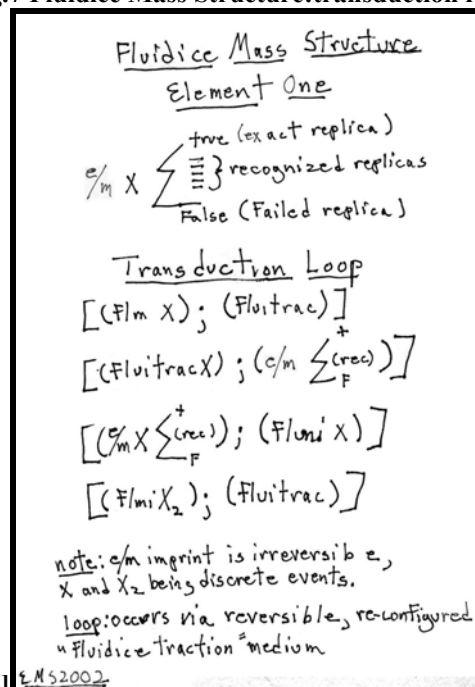 Fluidice Mass Structure
Element One
true (exact replica)
e/m X { recognized replicas
False (Failed replica)
Transduction Loop
[(Flm X); (Fluitrac)]
[(FluitracX); (e/m Σ +(rec) F)]
[(e/m X Σ +(rec) F); (Flumi X)]
[(FlmiX₂); (Fluitrac)]
note: e/m imprint is irreversib e,
X and X₂ being discrete events.
loop: occurs via reversible, re-configured
"Fluidice traction" medium
EMS2002